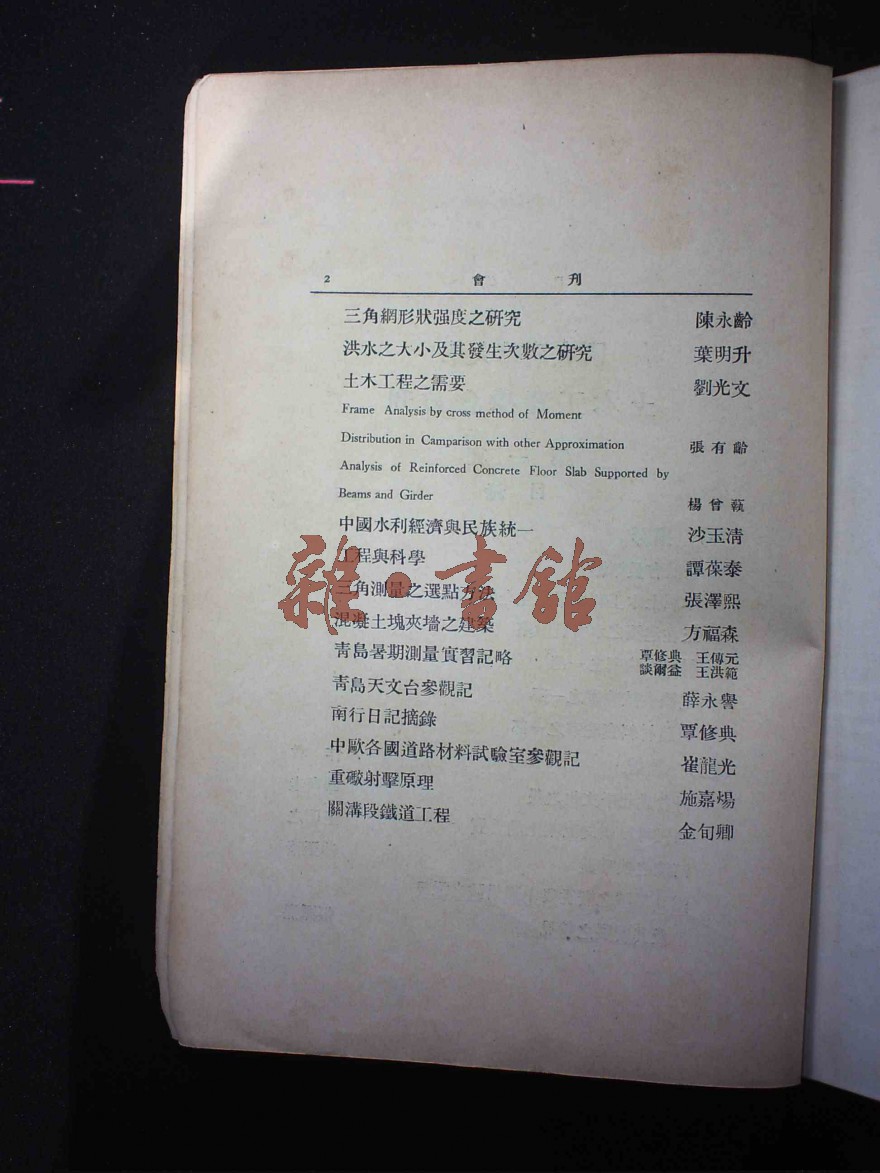 2 會刊
三角網形狀强度之研究 陳永齡
洪水之大小及其發生次數之研究 葉明升
土木工程之需要 劉光文
Frame Analysis by cross method of Moment
Distribution in Camparison with other Approximation 張有齡
Analysis of Reinforced Concrete Floor Slab Supported by
Beams and Girder 楊曾
中國水利經濟與民族統一 沙玉清
工程與科學 譚葆泰
三角測量之選點方法 張澤熙
混凝土塊夾墻之建築 方福森
靑島暑期測量實習記略 覃修典 王傳元
談爾益 王洪範
靑島天文台參觀記 薛永譽
南行日記摘錄 覃修典
中歐各國道路材料試驗室參觀記 崔龍光
重礮射擊原理 施嘉煬
關溝段鐵道工程 金旬卿
雜·書館